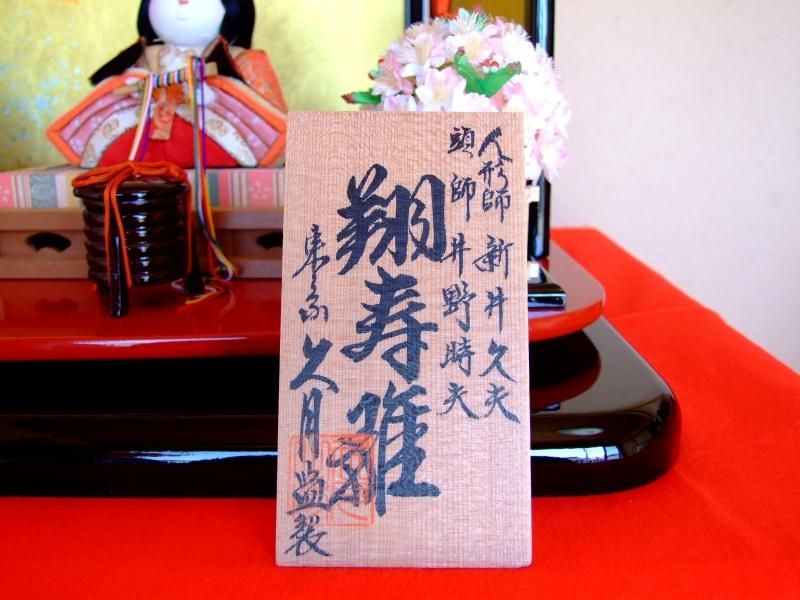 人形師 新井久夫
頭師 井野時夫
翔寿雅
東京 久月監製